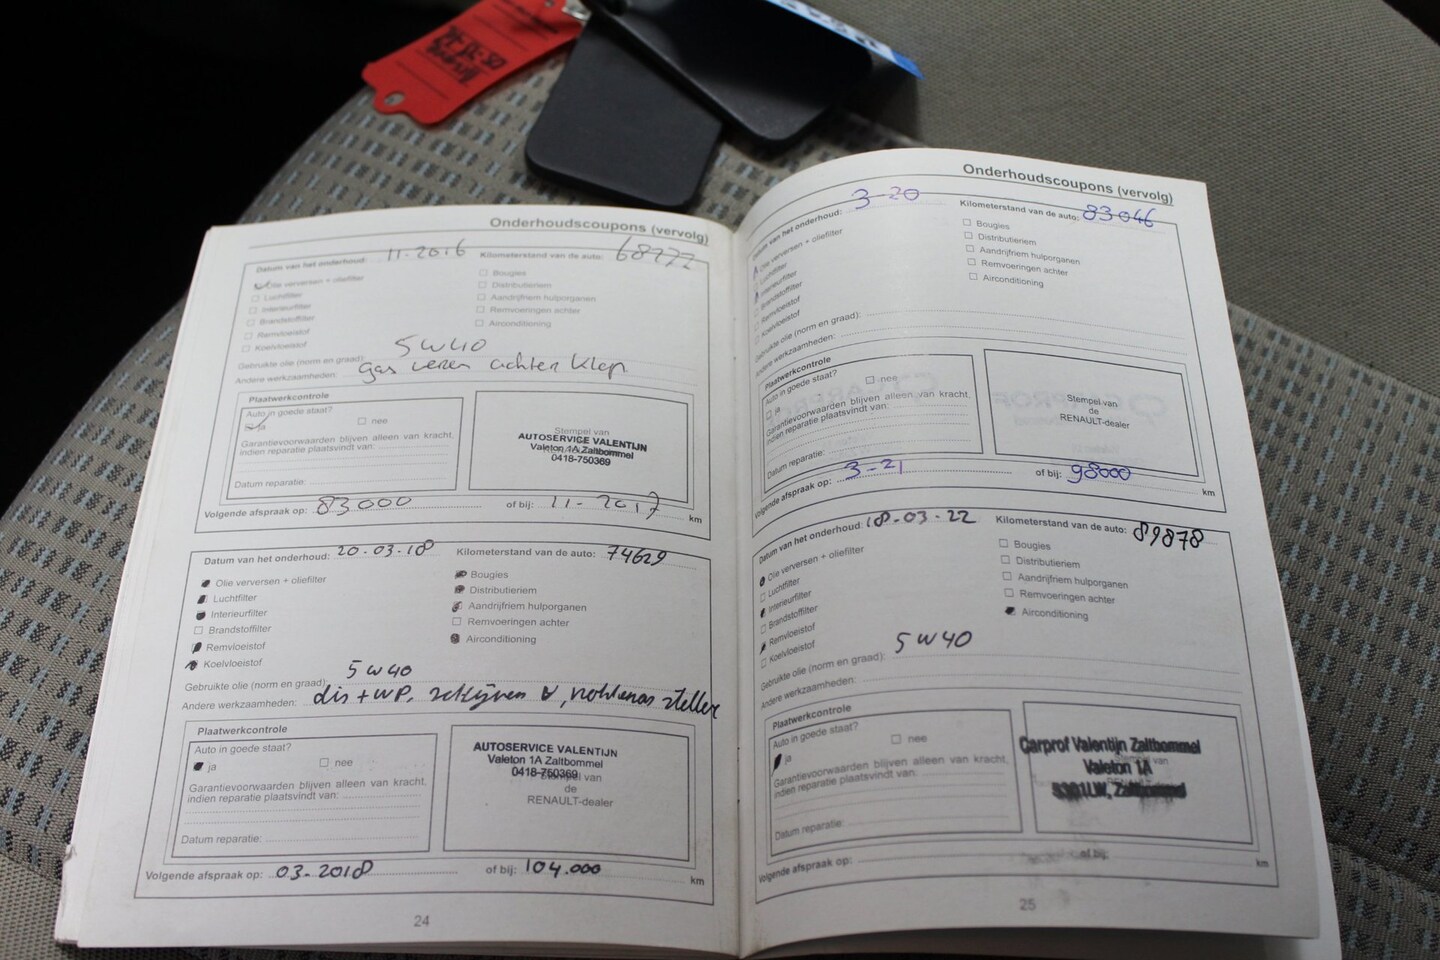 Onderhoudscoupons (vervolg)
Datum van het onderhoud: 11-2016 Kilometerstand van de auto: 68777
Olie verversen + oliefilter
Luchtfilter
Interieurfilter
Brandstoffilter
Remvloeistof
Koelvloeistof
Bougies
Distributieriem
Aandrijfriem hulporganen
Remvoeringen achter
Airconditioning
Gebruikte olie (norm en graad): 5W40
Andere werkzaamheden: gas veren achter klep
Plaatwerkcontrole
Auto in goede staat?
ja nee
Garantievoorwaarden blijven alleen van kracht,
indien reparatie plaatsvindt van:
Datum reparatie:
Stempel van
AUTOSERVICE VALENTIJN
Valeton 1A Zaltbommel
0418-750369
Volgende afspraak op: 83000 of bij: 11-2017 km
Datum van het onderhoud: 20-03-18 Kilometerstand van de auto: 74629
Olie verversen + oliefilter
Luchtfilter
Interieurfilter
Brandstoffilter
Remvloeistof
Koelvloeistof
Bougies
Distributieriem
Aandrijfriem hulporganen
Remvoeringen achter
Airconditioning
Gebruikte olie (norm en graad): 5W40
Andere werkzaamheden: dis + WP, schijven
Plaatwerkcontrole
Auto in goede staat?
ja nee
Garantievoorwaarden blijven alleen van kracht,
indien reparatie plaatsvindt van:
Datum reparatie:
AUTOSERVICE VALENTIJN
Valeton 1A Zaltbommel
0418-750369
Stempel van
de
RENAULT-dealer
Volgende afspraak op: 03-2018 of bij: 104.000 km
24
Onderhoudscoupons (vervolg)
Datum van het onderhoud: 3-20 Kilometerstand van de auto: 83046
Olie verversen + oliefilter
Luchtfilter
Interieurfilter
Brandstoffilter
Remvloeistof
Koelvloeistof
Bougies
Distributieriem
Aandrijfriem hulporganen
Remvoeringen achter
Airconditioning
Gebruikte olie (norm en graad):
Andere werkzaamheden:
Plaatwerkcontrole
Auto in goede staat?
ja nee
Garantievoorwaarden blijven alleen van kracht,
indien reparatie plaatsvindt van:
Datum reparatie:
Stempel van
de
RENAULT-dealer
Volgende afspraak op: 3-21 of bij: 98000 km
Datum van het onderhoud: 18-03-22 Kilometerstand van de auto: 89878
Olie verversen + oliefilter
Luchtfilter
Interieurfilter
Brandstoffilter
Remvloeistof
Koelvloeistof
Bougies
Distributieriem
Aandrijfriem hulporganen
Remvoeringen achter
Airconditioning
Gebruikte olie (norm en graad): 5W40
Andere werkzaamheden:
Plaatwerkcontrole
Auto in goede staat?
ja nee
Garantievoorwaarden blijven alleen van kracht,
indien reparatie plaatsvindt van:
Datum reparatie:
Carprof Valentijn Zaltbommel
Valeton 1A
5301LW, Zaltbommel
Volgende afspraak op: of bij: km
25